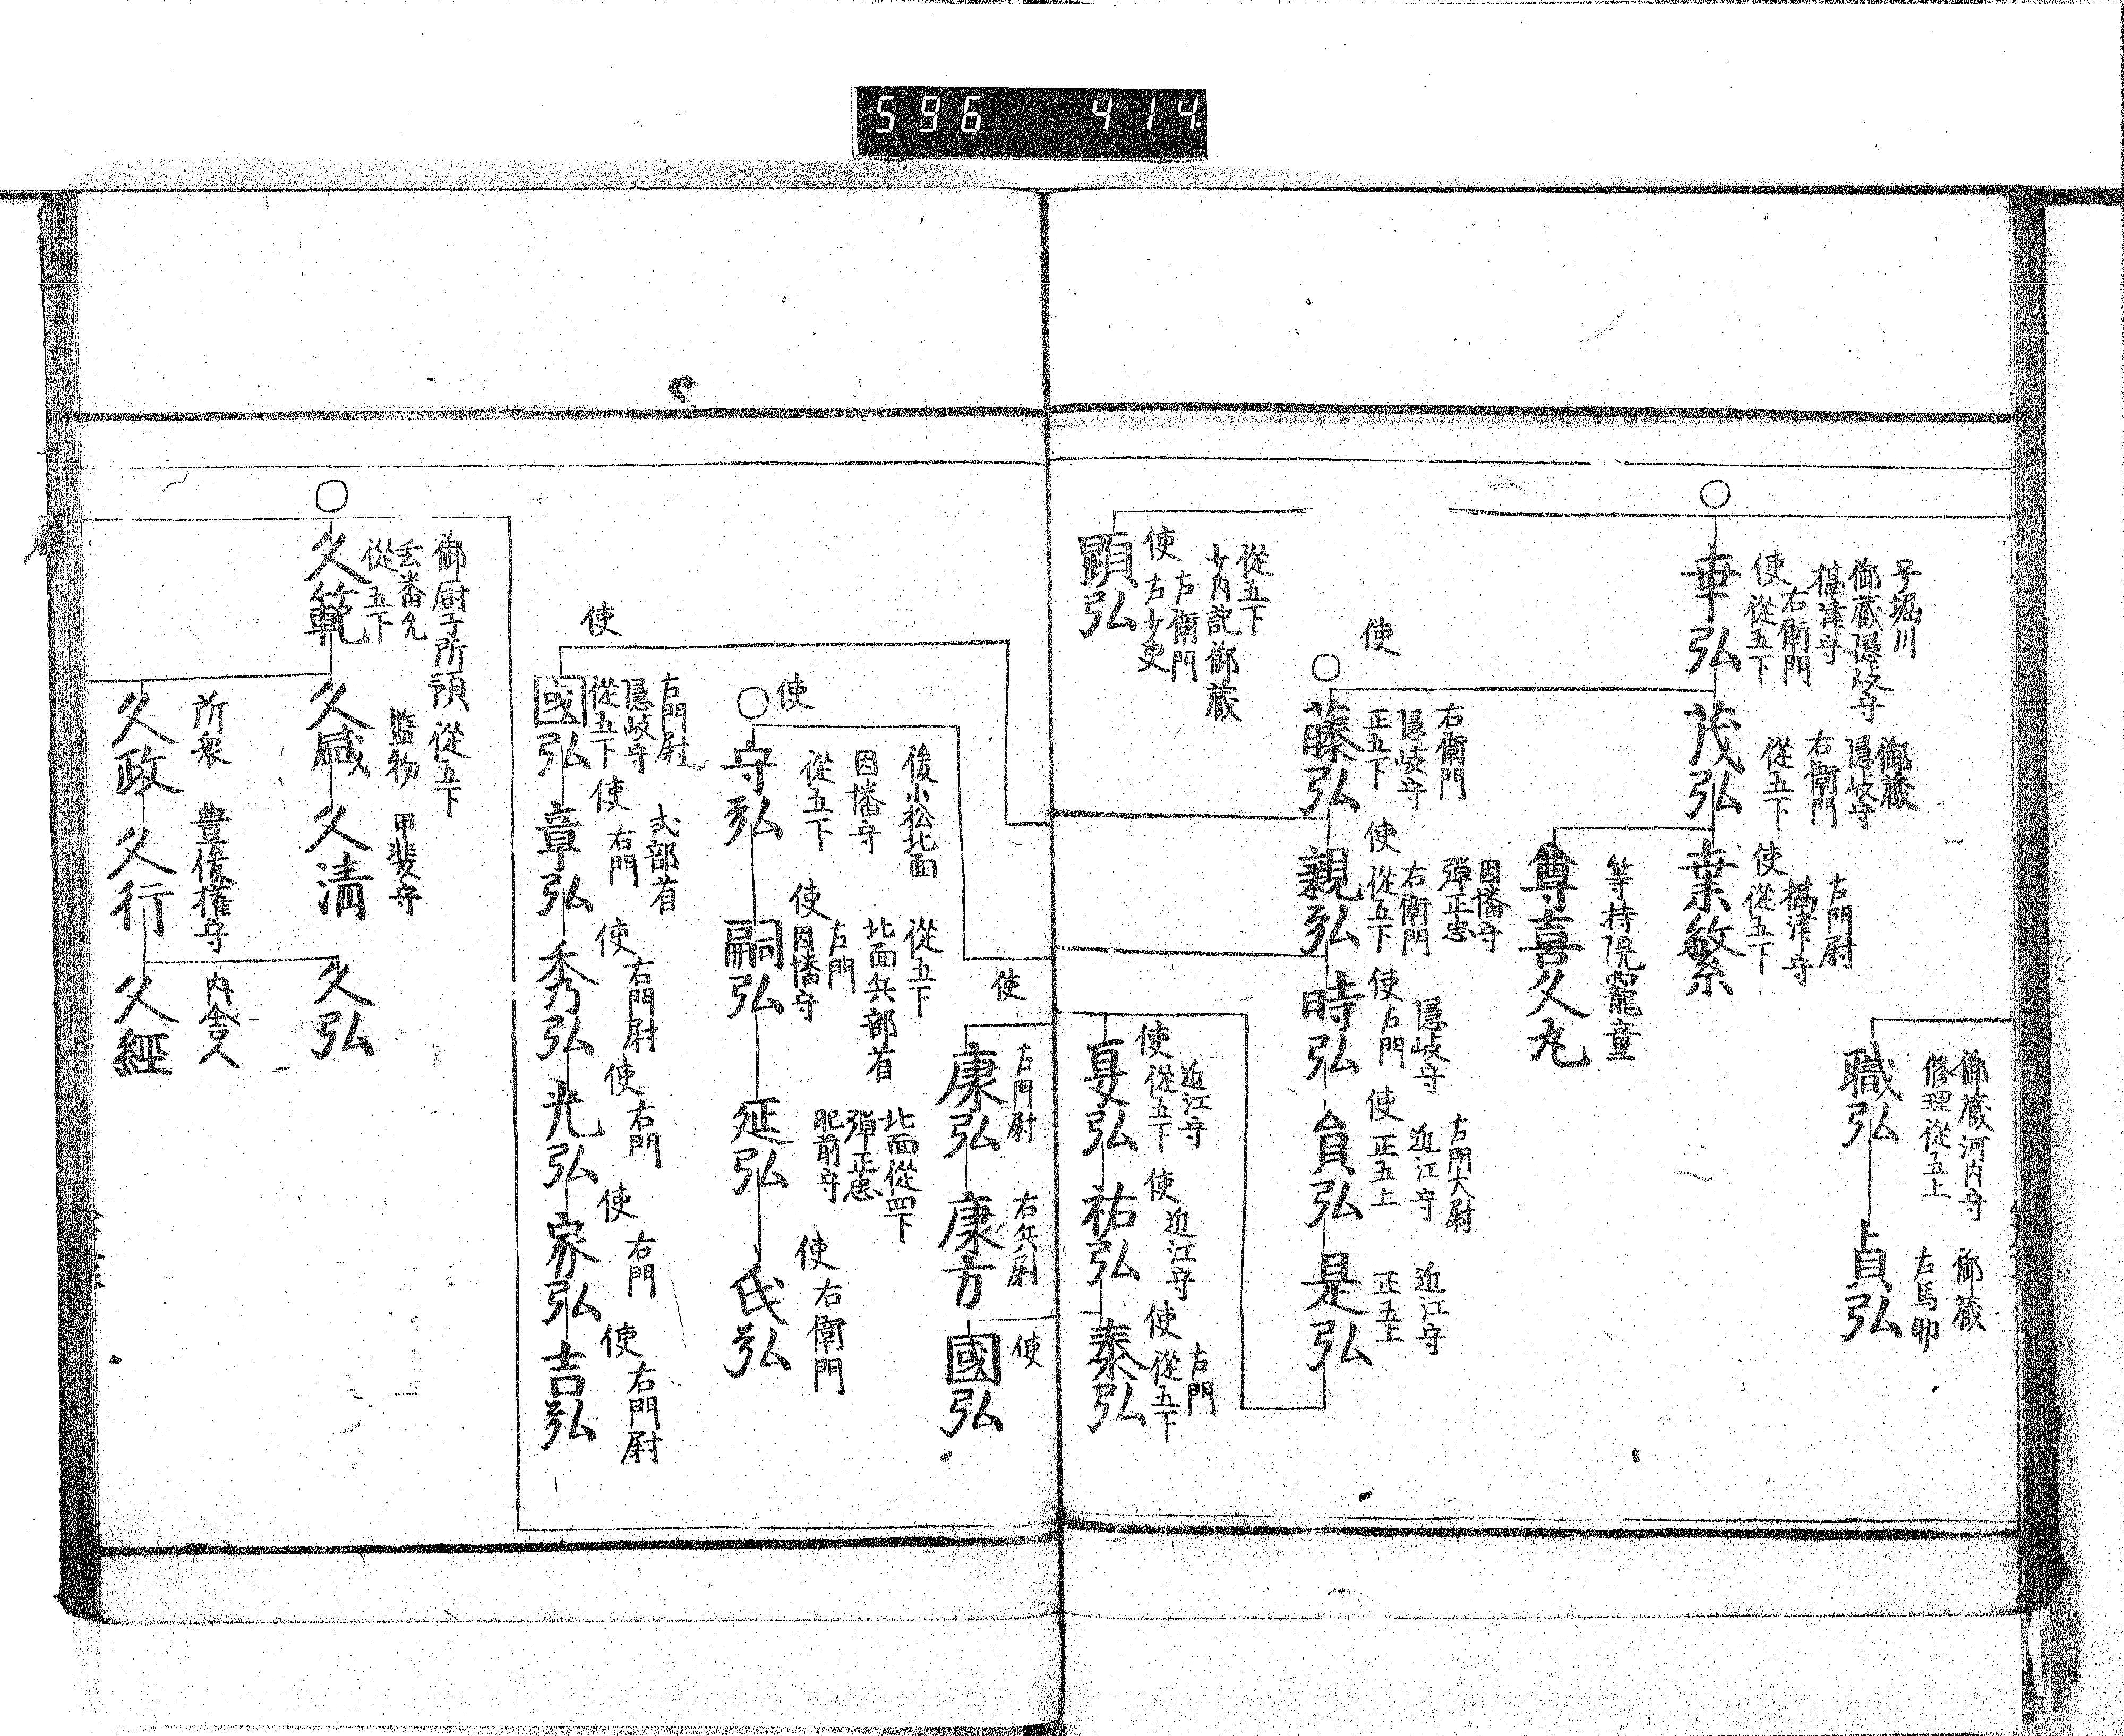 596 414
御蔵河内守
修理従五上
職弘
御蔵
右馬助
貞弘
号堀川
御蔵隠岐守
摂津守
右衛門
使従五下
幸弘
御蔵
隠岐守
右衛門
従五下
茂弘
右門尉
摂津守
使従五下
業繁
等持院寵童
尊喜久丸
使
右衛門
隠岐守
正五下
藤弘
因幡守
弾正忠
右衛門
使従五下
親弘
隠岐守
使右門
時弘
右門大尉
近江守
使正五上
員弘
近江守
正五上
是弘
従五下
少内記御蔵
右衛門
使右少史
顕弘
近江守
使従五下
宴弘
使近江守
祐弘
右門
使従五下
泰弘
使
右門尉
康弘
右兵尉
康方
使
國弘
使
後小松北面
因幡守
従五下
守弘
従五下
北面兵部首
右門
使因幡守
嗣弘
北面従四下
弾正忠
肥前守
延弘
使右衛門
氏弘
使
右門尉
隠岐守
従五下
國弘
式部首
使右門
章弘
使右門尉
秀弘
使右門
光弘
使右門
家弘
使右門尉
吉弘
御厨子所預従五下
玄番允
従五下
久範
監物
久盛
甲斐守
久清
久弘
所衆
久政
豊後権守
久行
内舎人
久經